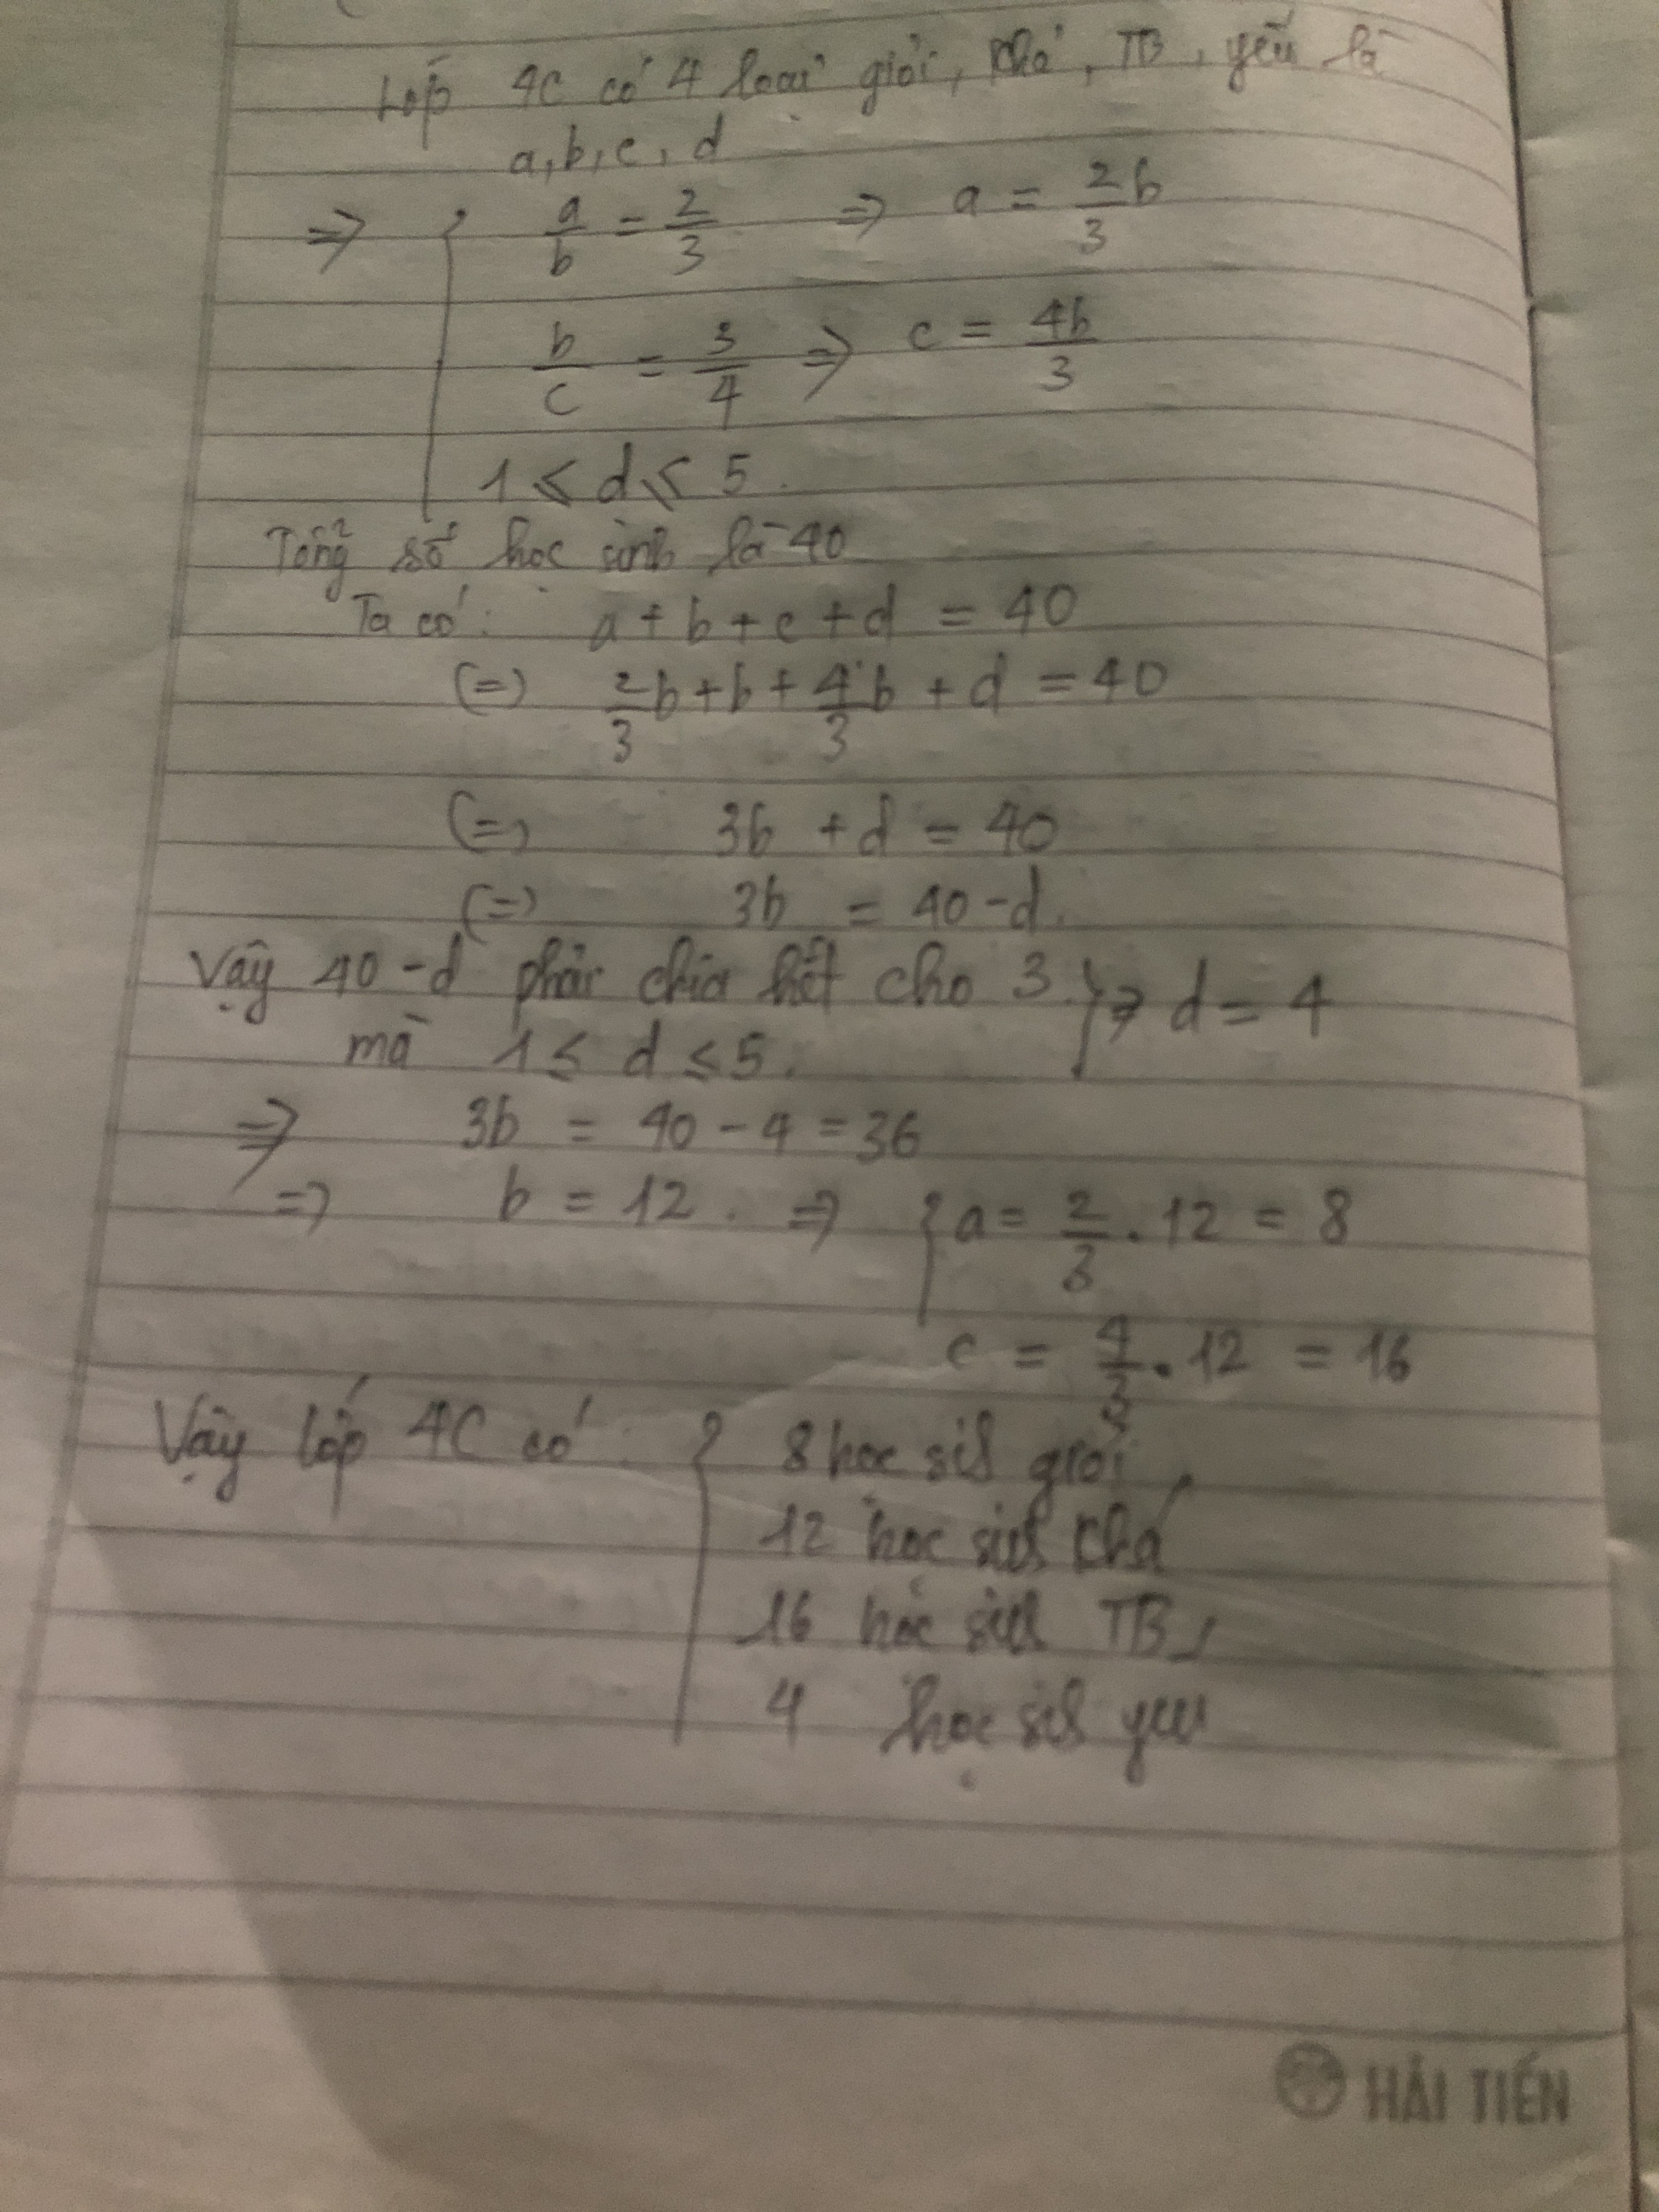 Lớp 4C có 4 loại giỏi, khá, TB, yếu là
a, b, c, d
=> { a/b = 2/3 => a = 2b/3
b/c = 3/4 => c = 4b/3
1 ≤ d ≤ 5.
Tổng số học sinh là 40
Ta có: a + b + c + d = 40
(=) 2/3 b + b + 4/3 b + d = 40
(=) 3b + d = 40
(=) 3b = 40 - d.
Vậy 40 - d phải chia hết cho 3. } => d = 4
mà 1 ≤ d ≤ 5.
=> 3b = 40 - 4 = 36
=> b = 12. => { a = 2/3 . 12 = 8
c = 4/3 . 12 = 16
Vậy lớp 4C có: { 8 học sih giỏi,
12 học sih khá
16 học sih TB,
4 học sih yeu
HẢI TIẾN